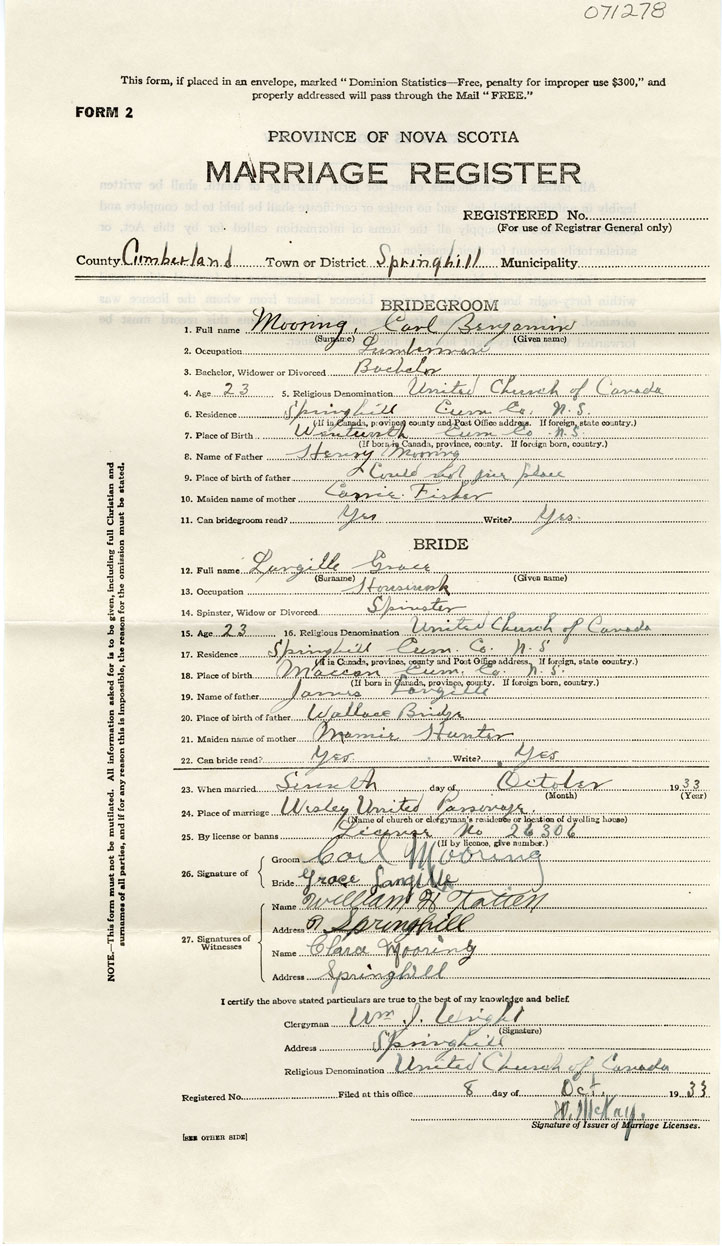 071278
This form, if placed in an envelope, marked "Dominion Statistics—Free, penalty for improper use $300," and
properly addressed will pass through the Mail "FREE."
FORM 2
PROVINCE OF NOVA SCOTIA
MARRIAGE REGISTER
REGISTERED No.
(For use of Registrar General only)
County Cumberland Town or District Springhill Municipality
BRIDEGROOM
1. Full name Mooring, Carl Benjamin
(Surname) (Given name)
2. Occupation Lumberman
3. Bachelor, Widower or Divorced Bachelor
4. Age 23 5. Religious Denomination United Church of Canada
6. Residence Springhill Cum Co. N.S.
(If in Canada, province, county and Post Office address. If foreign, state country.)
7. Place of Birth Wentworth Cum Co N.S.
(If born in Canada, province, county. If foreign born, country.)
8. Name of Father Henry Mooring
9. Place of birth of father Could not give place
10. Maiden name of mother Carrie Fisher
11. Can bridegroom read? Yes Write? Yes.
BRIDE
12. Full name Langille Grace
(Surname) (Given name)
13. Occupation Housework
14. Spinster, Widow or Divorced Spinster
15. Age 23 16. Religious Denomination United Church of Canada
17. Residence Springhill Cum. Co. N.S.
(If in Canada, province, county and Post Office address. If foreign, state country.)
18. Place of birth Maccan Cum. Co N.S.
(If born in Canada, province, county. If foreign born, country.)
19. Name of father James Langille
20. Place of birth of father Wallace Bridge
21. Maiden name of mother Mamie Hunter
22. Can bride read? Yes. Write? Yes
23. When married Seventh day of October 1933
(Month) (Year)
24. Place of marriage Wesley United Parsonage.
(Name of church or clergyman's residence or location of dwelling house)
25. By license or banns License No 26306
(If by licence, give number.)
26. Signature of Groom Carl Mooring
Bride Grace Langille
27. Signatures of Witnesses
Name William H
Address Springhill
Name Clara Mooring
Address Springhill
I certify the above stated particulars are true to the best of my knowledge and belief.
Clergyman Wm J. Wright
(Signature)
Address Springhill
Religious Denomination United Church of Canada
Registered No. Filed at this office 8 day of Oct. 1933
W. McKay.
Signature of Issuer of Marriage Licenses.
[SEE OTHER SIDE]
NOTE.—This form must not be mutilated. All information asked for is to be given, including full Christian and
surnames of all parties, and if for any reason this is impossible, the reason for the omission must be stated.